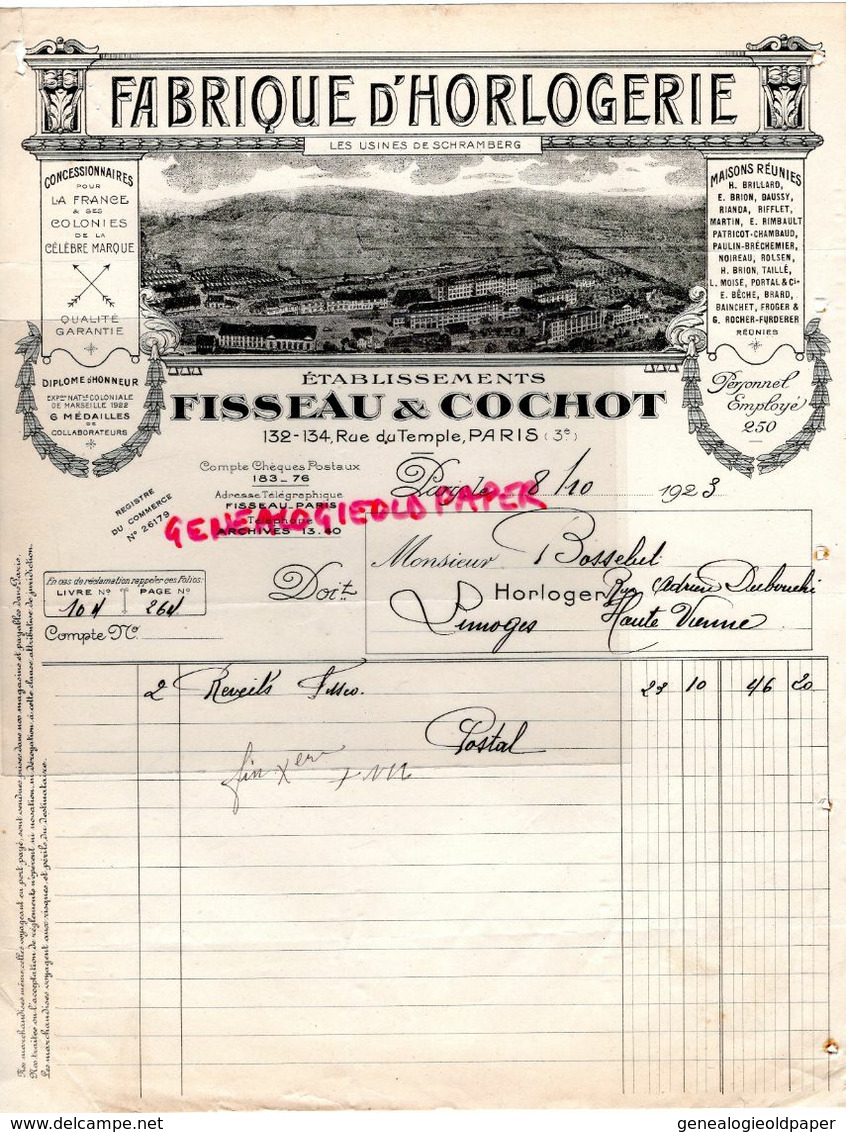 FABRIQUE D'HORLOGERIE
LES USINES DE SCHRAMBERG
CONCESSIONNAIRES
POUR
LA FRANCE
& SES
COLONIES
DE LA
CÉLÈBRE MARQUE
QUALITÉ
GARANTIE
MAISONS RÉUNIES
H. BRILLARD,
E. BRION, DAUSSY,
RIANDA, RIFFLET,
MARTIN, E. RIMBAULT
PATRICOT-CHAMBAUD,
PAULIN-BRÉCHEMIER,
NOIREAU, ROLSEN,
H. BRION, TAILLÉ,
L. MOISE, PORTAL & Cie
E. BÊCHE, BRARD,
BAINCHET, FROGER &
G. ROCHER-FURDERER
RÉUNIES
DIPLOME D'HONNEUR
EXPon NATle COLONIALE
DE MARSEILLE 1922
6 MÉDAILLES
DE
COLLABORATEURS
Personnel
Employé
250
ÉTABLISSEMENTS
FISSEAU & COCHOT
132-134, Rue du Temple, PARIS (3e)
Compte Chèques Postaux
183-76
Adresse Télégraphique
FISSEAU-PARIS
Téléphone
ARCHIVES 13.40
GENEALOGIEOLDPAPER
REGISTRE
DU COMMERCE
No 26179
Paris, le 8/10 1923
Monsieur Bosselut
Horloger Rue Adrien Dubouché
Limoges Haute Vienne
Doit
En cas de réclamation rappeler ces Folios:
LIVRE No PAGE No
104 264
Compte No
2 Reveils Fisseo. 23 10 46 20
Postal
Nos marchandises même celles voyageant en port payé, sont vendues prises dans nos magasins et payables dans Paris.
Nos traites ou l'acceptation de règlements n'opèrent ni novation ni dérogation à cette clause attributive de juridiction.
Les marchandises voyagent aux risques et périls du destinataire.
delcampe.net
genealogieoldpaper